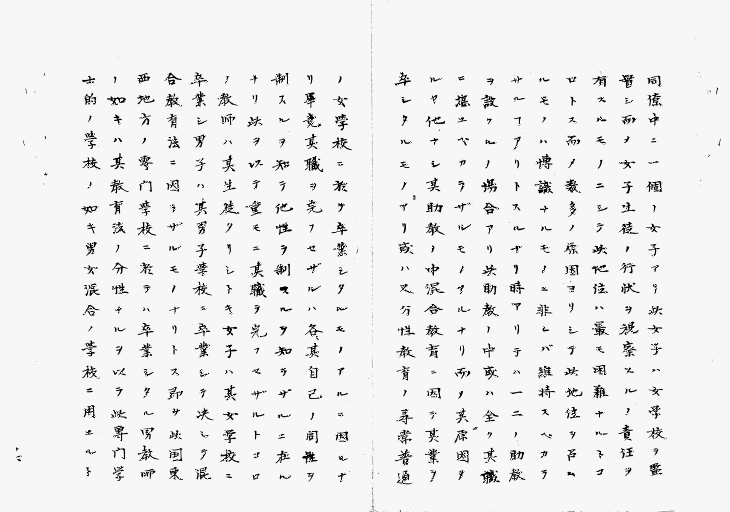 同僚中ニ一個ノ女子アリ此女子ハ女学校ヲ監
督シ而メ女子生徒ノ行状ヲ視察スルノ責任ヲ
有スルモノニシテ此地位ハ最モ困難ナルトコ
ロトス而ノ数多ノ原因ヨリシテ此地位ヲ占ム
ルモノハ博識ナルモノニ非レバ維持スベカラ
サルアリトスルナリ時アリテハ一二ノ助教
ヲ設クルノ場合アリ此助教ノ中或ハ全ク其職
ニ堪ユベカラザルモノアルナリ而メ其原因タ
ルヤ他ナシ其助教ノ中混合教育ニ因テ其業ヲ
卒シタルモノアリ或ハ又分性教育ノ尋常普通
ノ女学校ニ於テ卒業シタルモノアルニ因ルナ
リ畢竟其職ヲ完フセザルハ各其自己ノ同性ヲ
制スルヲ知テ他性ヲ制スルヲ知ラザルニ在ル
ナリ此ヲ以テ童モニ其職ヲ完フセザルトコロ
ノ教師ハ其生徒タリシトキ女子ハ其女学校ニ
卒業シ男子ハ其男子学校ニ卒業シテ決シテ混
合教育法ニ因ラザルモノナリトス即チ此国東
西地方ノ専門学校ニ於テハ卒業シタル男教師
ノ如キハ其教育法ノ分性ナルヲ以テ此専門学
士的ノ学校ノ如キ男女混合ノ学校ニ用ユルト